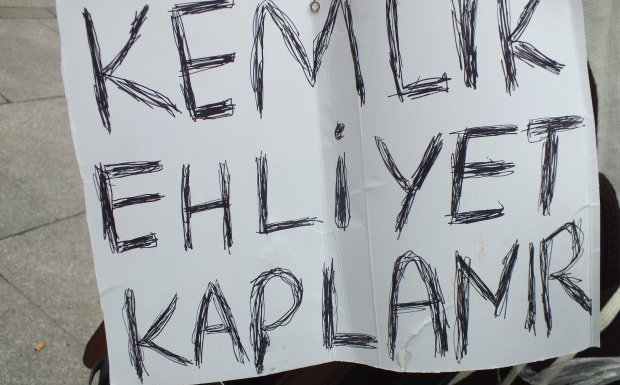 KEMLIK
EHLiYET
KAPLANIR